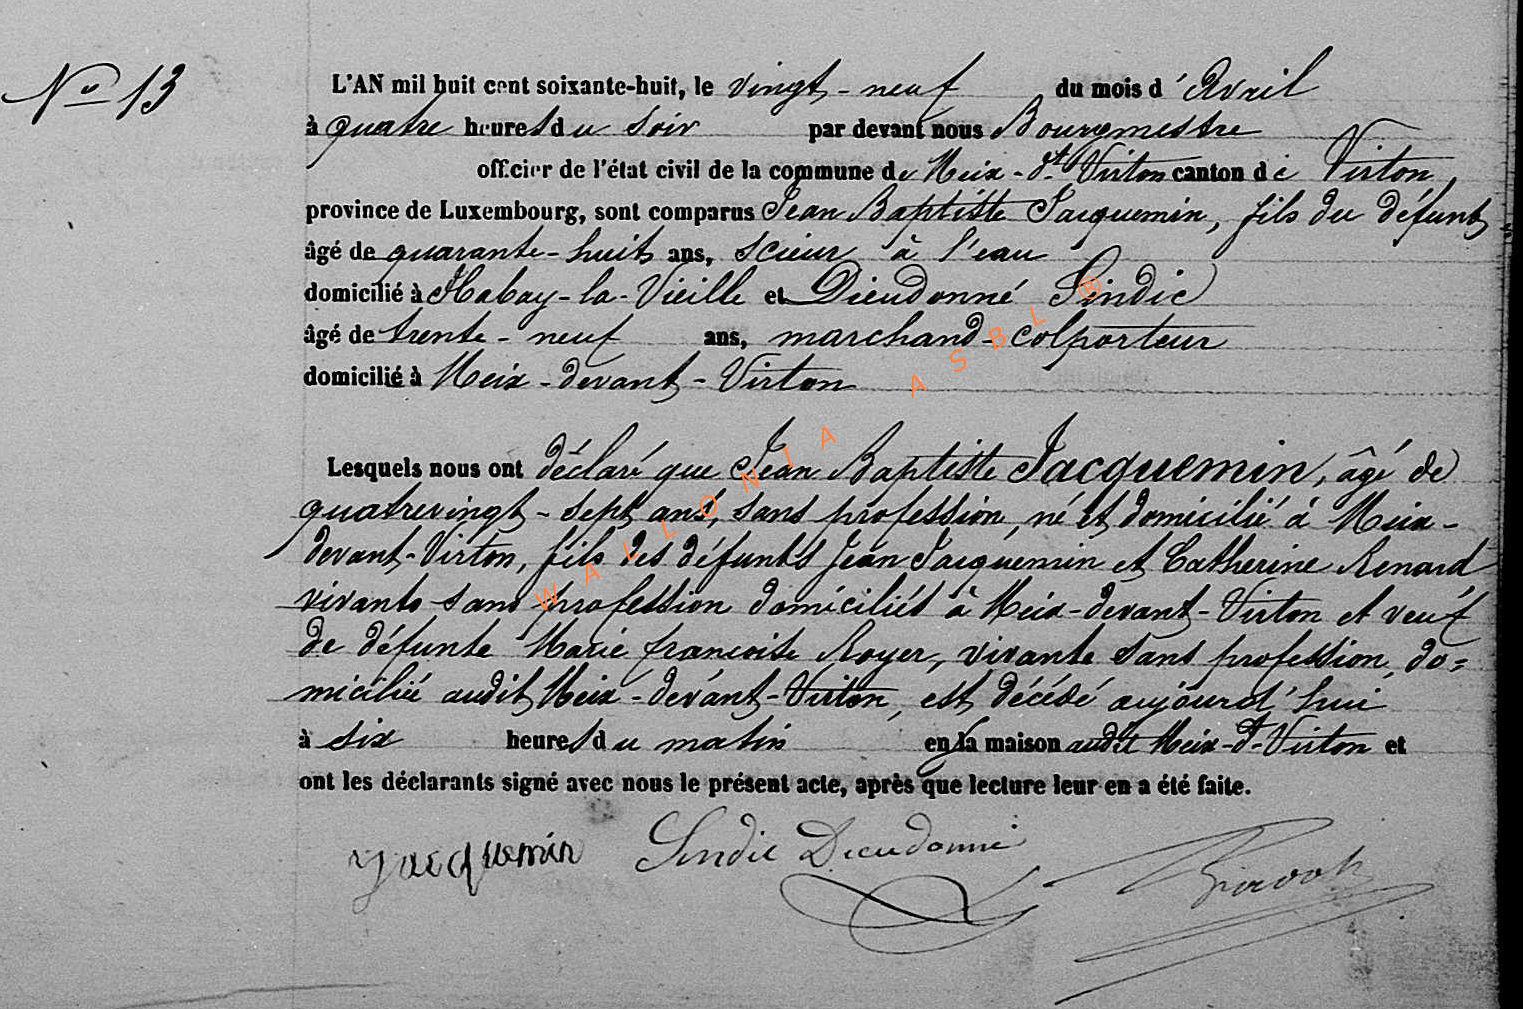 No 13
L'AN mil huit cent soixante-huit, le vingt-neuf du mois d'Avril
à quatre heures du soir par devant nous Bourgmestre
officier de l'état civil de la commune de Meix-dt Virton canton de Virton,
province de Luxembourg, sont comparus Jean Baptiste Jacquemin, fils du défunt
âgé de quarante-huit ans, scieur à l'eau
domicilié à Habay-la-Vieille et Dieudonné Sindic
âgé de trente-neuf ans, marchand-colporteur
domicilié à Meix-devant-Virton
Lesquels nous ont déclaré que Jean Baptiste Jacquemin, âgé de
quatrevingt-sept ans, sans profession, né et domicilié à Meix-
devant-Virton, fils des défunts Jean Jacquemin et Catherine Renard
vivants sans profession domiciliés à Meix-devant-Virton et veuf
de défunte Marie françoise Royer, vivante sans profession, do=
miciliée audit Meix-devant-Virton, est décédé aujourd'hui
à six heures du matin en sa maison audit Meix-dt-Virton et
ont les déclarants signé avec nous le présent acte, après que lecture leur en a été faite.
Jacquemin Sindic Dieudonné
WALLONIA ASBL ®